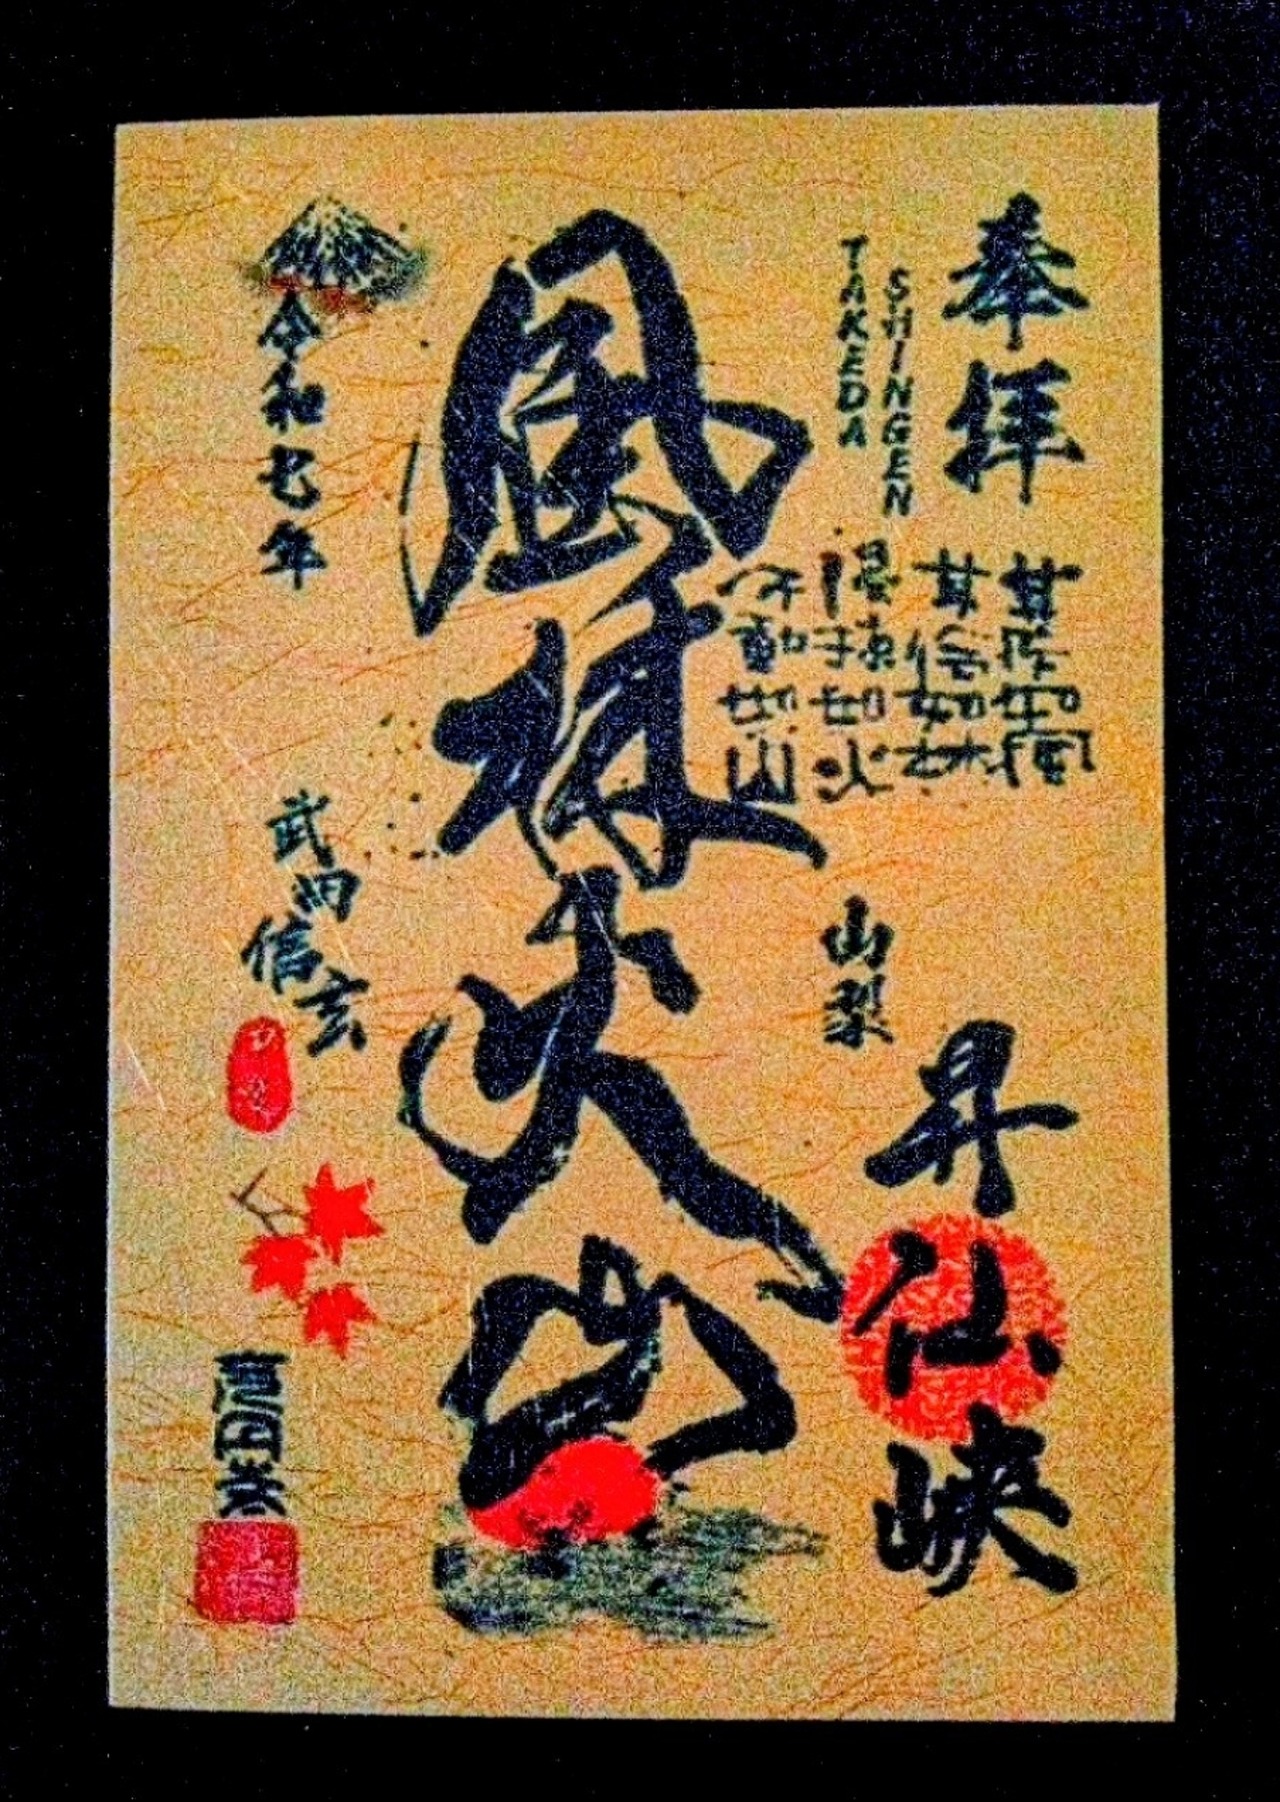 奉拝
其疾如風
其徐如林
侵掠如火
不動如山
TAKEDA
SHINGEN
山梨
昇仙峡
風林火山
令和七年
武田信玄